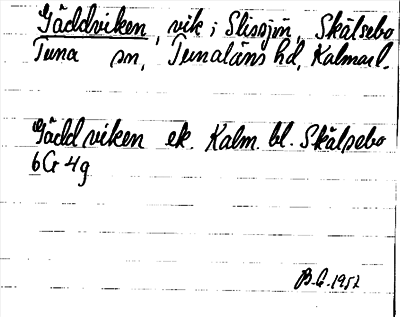 Gäddviken, vik i Slissjön, Skälsebo
Tuna sn, Tunaläns hd, Kalmar l.
Gäddviken ek. Kalm. bl. Skälsebo
6Cr 4g
B.G. 1952